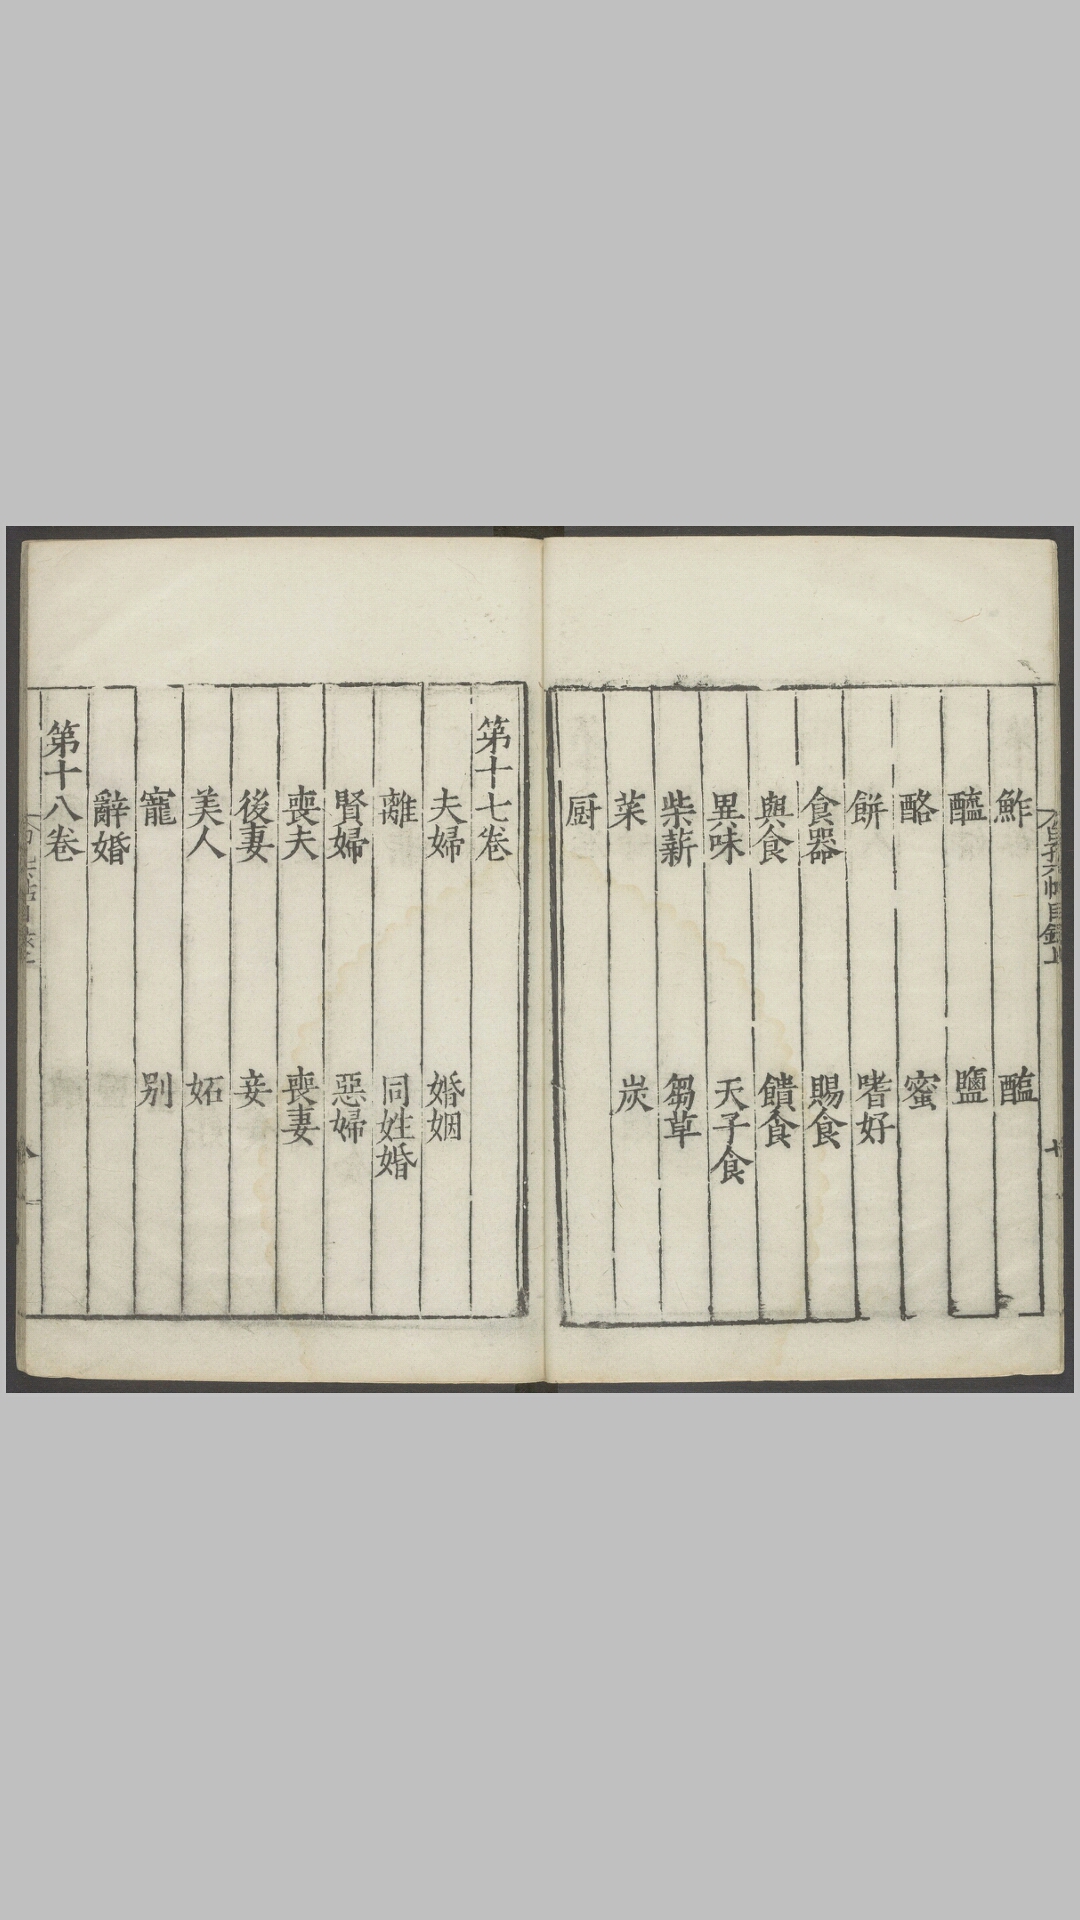 鮓　醢
醯　鹽
酪　蜜
餅　嗜好
食器　賜食
與食　饋食
異味　天子食
柴薪　芻草
菜　炭
厨
第十七卷
夫婦　婚姻
離　同姓婚
賢婦　惡婦
喪夫　喪妻
後妻　妾
美人　妬
寵　别
辭婚
第十八卷